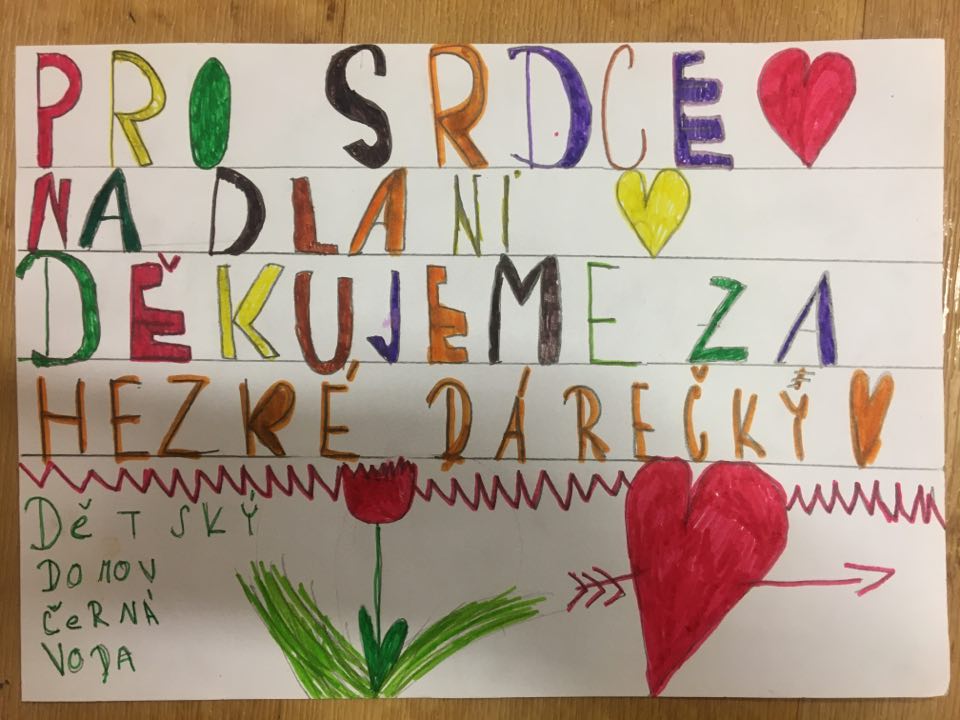 PRO SRDCE
NA DLANÍ
DĚKUJEME ZA
HEZKÉ DÁREČKY
DěTSKÝ
DOMOV
ČeRNÁ
VODA